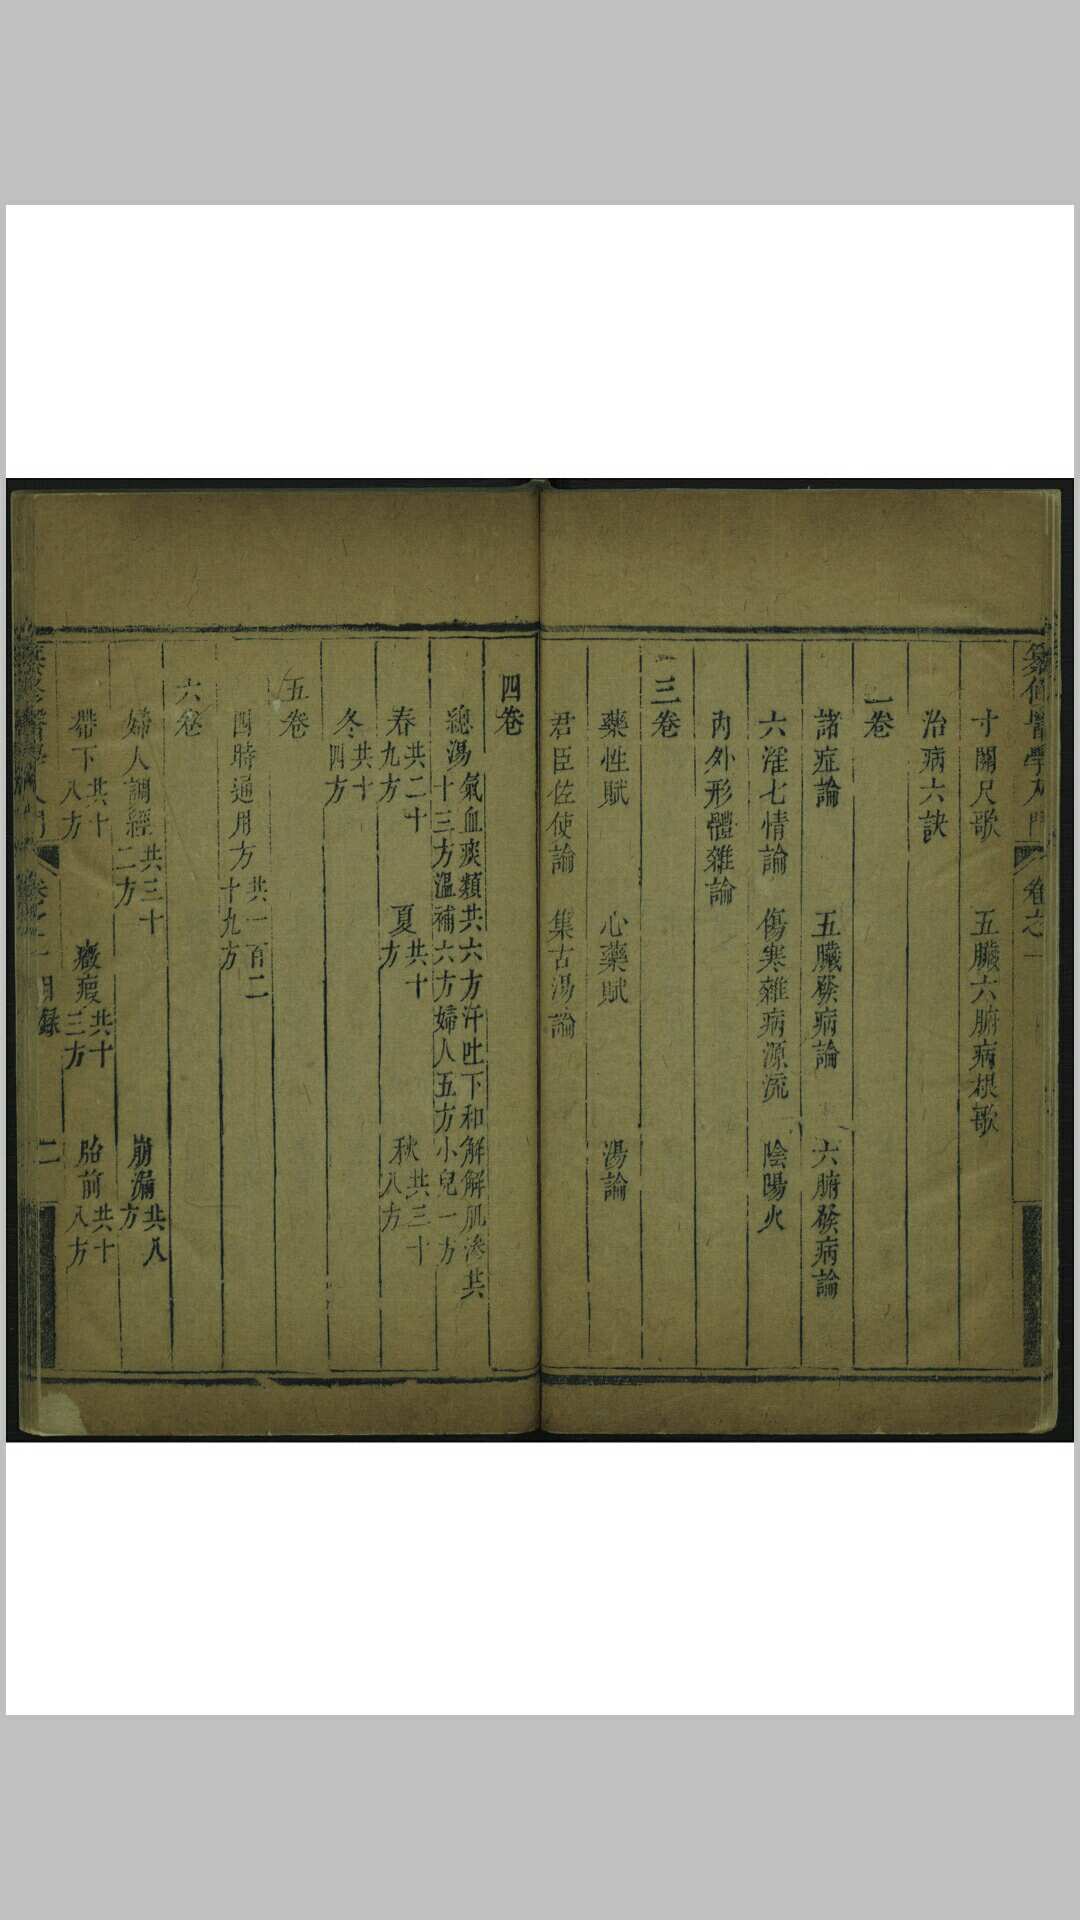 纂修醫學入門 卷之一
寸關尺歌 五臟六腑病根歌
治病六訣
二卷
諸症論 五臟候病論 六腑候病論
六淫七情論 傷寒雜病源流 陰陽火
內外形體雜論
三卷
藥性賦 心藥賦 湯論
君臣佐使論 集古湯論
四卷
總湯 氣血痰類共六方汗吐下和解解肌滲共
十三方溫補六方婦人五方小兒一方
春 共二十九方 夏 共十方 秋 共三十八方
冬 共十四方
五卷
四時通用方 共一百二十九方
六卷
婦人調經 共三十二方 崩漏 共八方
帶下 共十八方 癥瘕 共十三方 胎前 共十八方
醫學入門 卷之一 目錄 二